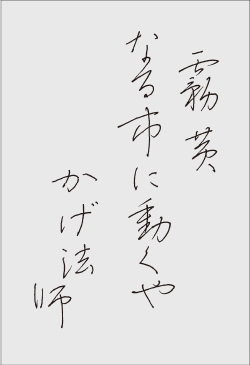 霧黄
なる市に動くや
かげ法師